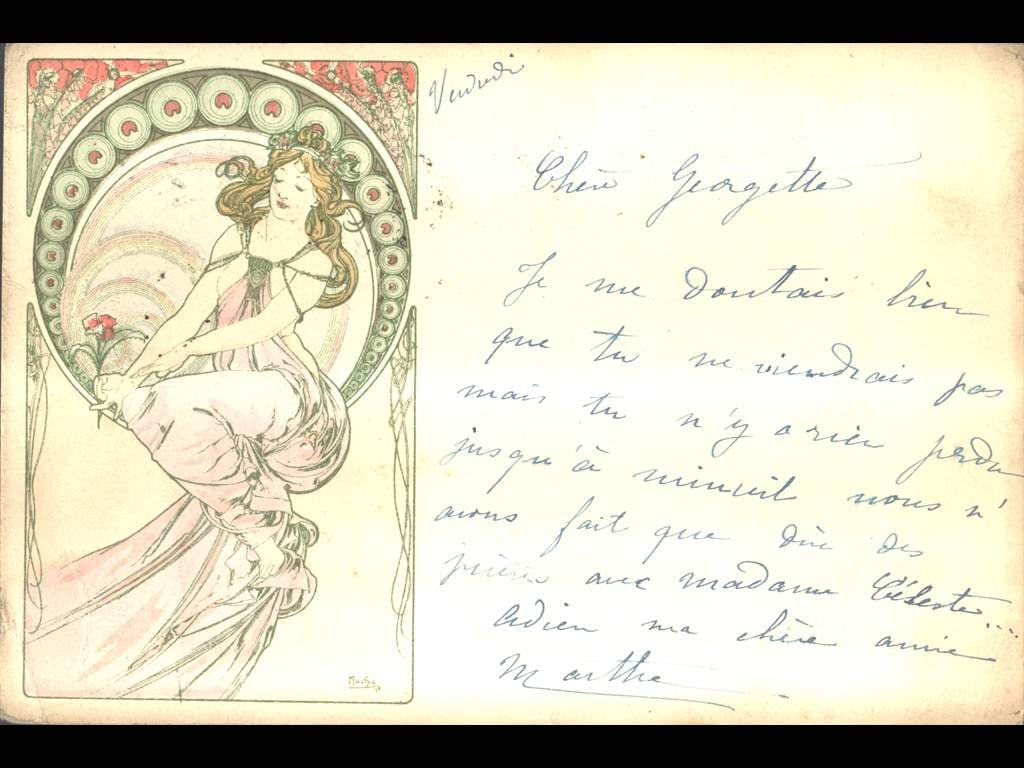 Vendredi
Chère Georgette
Je me doutais bien
que tu ne viendrais pas
mais tu n'y a rien perdu
jusqu'à minuit nous n'
avons fait que dire des
prières avec madame Céleste...
Adieu ma chère amie
Marthe
Mucha